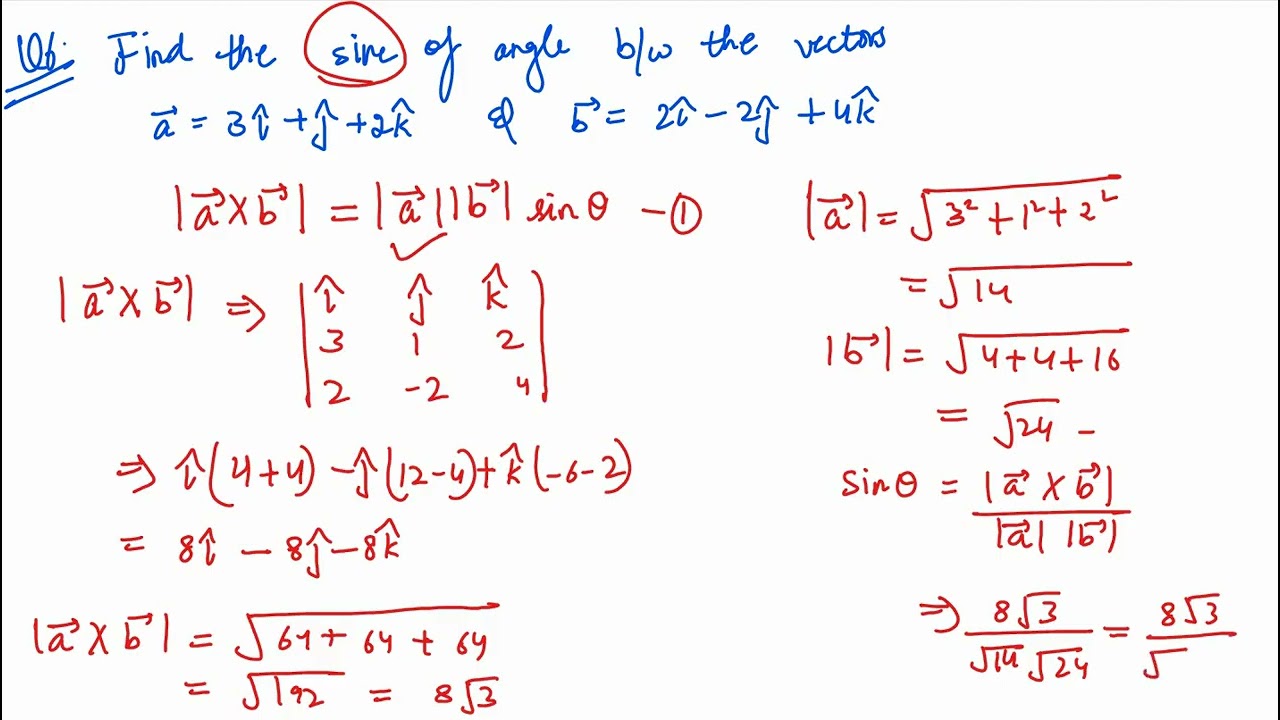 Q6. Find the sine of angle b/w the vectors
a⃗ = 3î + ĵ + 2k̂ & b⃗ = 2î - 2ĵ + 4k̂
|a⃗ × b⃗| = |a⃗||b⃗| sinθ - ①
|a⃗ × b⃗| ⇒ | î ĵ k̂ |
| 3 1 2 |
| 2 -2 4 |
⇒ î(4+4) - ĵ(12-4) + k̂(-6-2)
= 8î - 8ĵ - 8k̂
|a⃗ × b⃗| = √(64 + 64 + 64)
= √192 = 8√3
|a⃗| = √(3² + 1² + 2²)
= √14
|b⃗| = √(4+4+16)
= √24 -
sinθ = |a⃗ × b⃗| / |a⃗| |b⃗|
⇒ 8√3 / √14 √24 = 8√3 / √